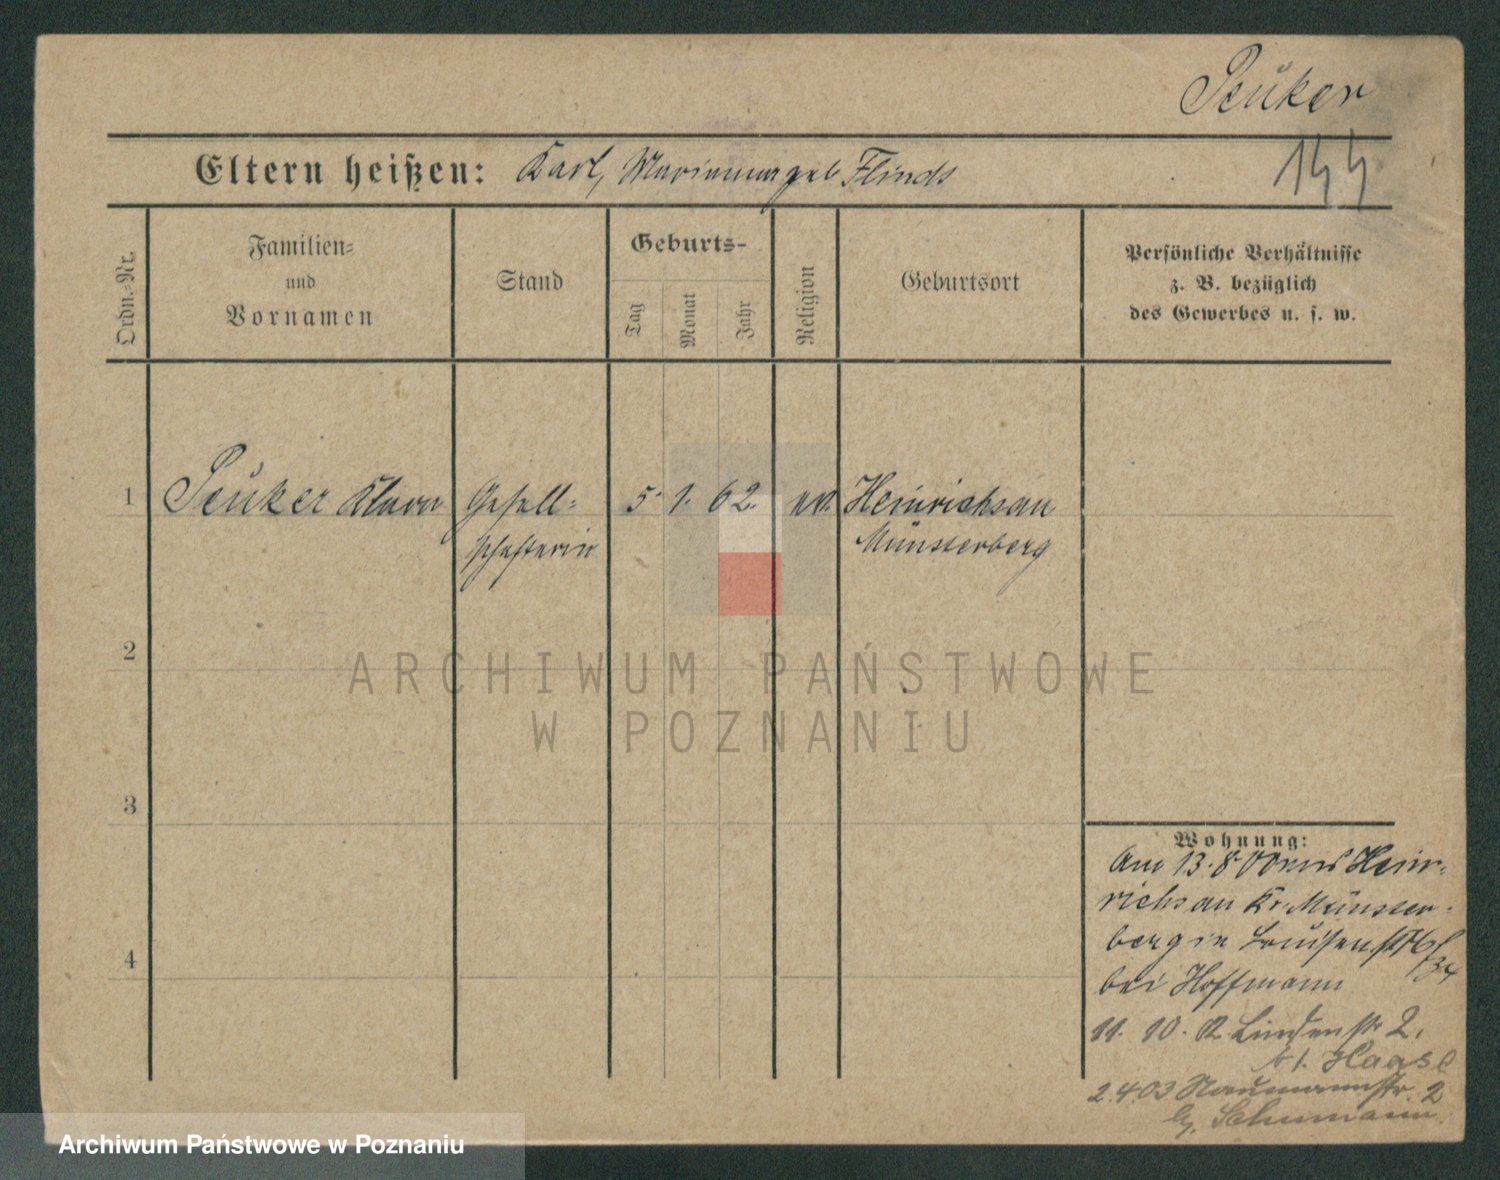 Peuker
Eltern heißen: Karl, Marianna geb Flinds
144
Ordn.-Nr.
Familien-
und
Vornamen
Stand
Geburts-
Tag
Monat
Jahr
Religion
Geburtsort
Persönliche Verhältnisse
z. B. bezüglich
des Gewerbes u. s. w.
1 Peuker Klara Gesell- 5. 1. 62. ev. Heinrichsau
schafterin Münsterberg
2
ARCHIWUM PAŃSTWOWE
W POZNANIU
3
4
Wohnung:
Am 13.8.00 von Hein-
richsau Kr. Münster-
berg in Louisenstr
bei Hoffmann
11. 10. 02. Lindenstr 2.
Haase
2.4.03 Naumannstr. 2
Schumann
Archiwum Państwowe w Poznaniu